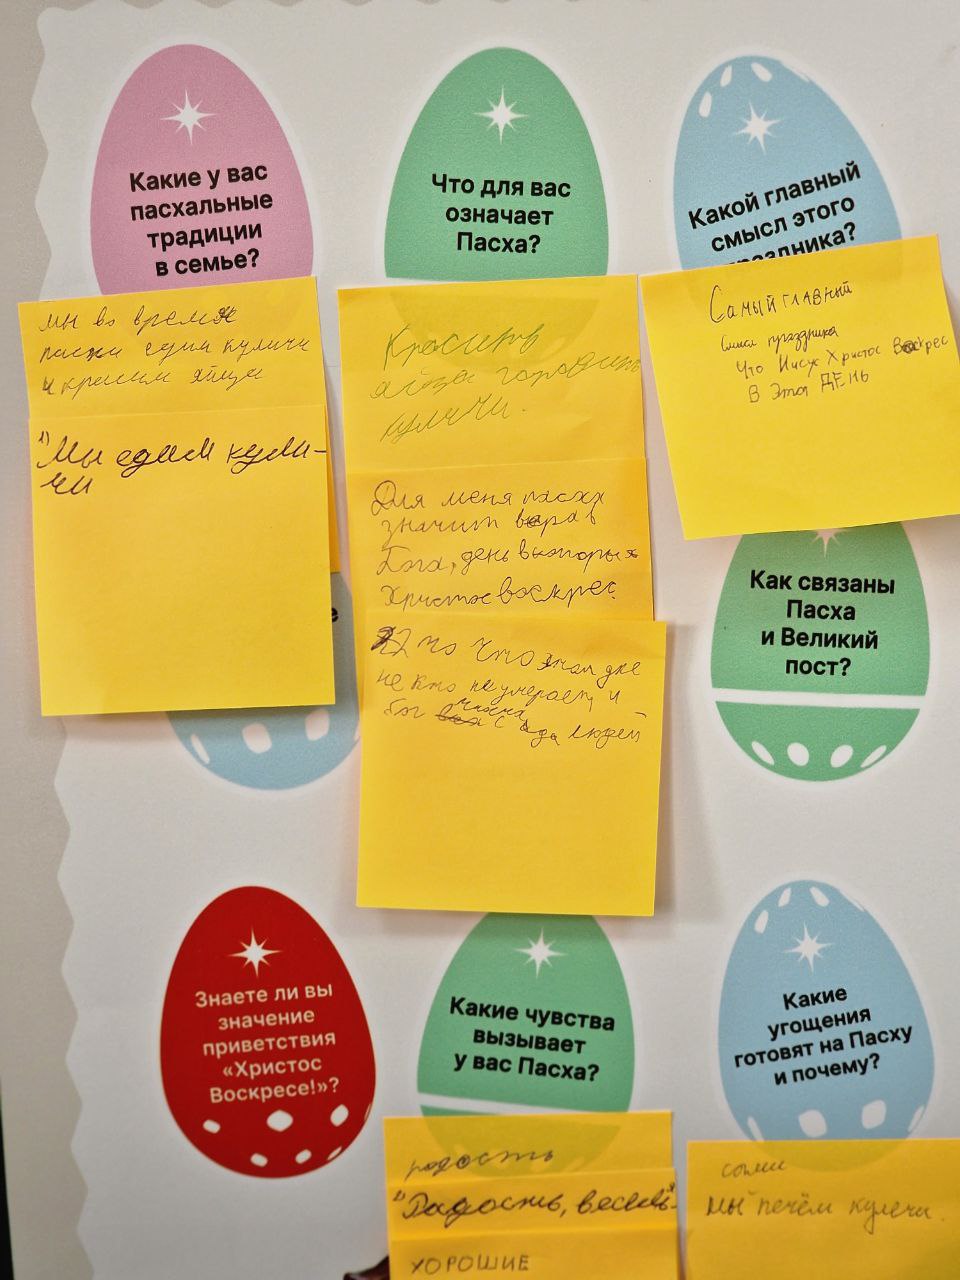 Какие у вас
пасхальные
традиции
в семье?
мы во время
пасхи едим куличи
и красим яйца
1) Мы едим кули-
чи
Что для вас
означает
Пасха?
Красить
яйца готовить
куличи.
Для меня пасха
значит вера в
Бога, день в который
Христос воскрес.
2) то что этом дне
не кто не умерает, и
бог с ада людей
Какой главный
смысл этого
праздника?
Самый главный
смысл праздника
Что Иисус Христос Воскрес
В Этот ДЕНЬ
е
Как связаны
Пасха
и Великий
пост?
Знаете ли вы
значение
приветствия
«Христос
Воскресе!»?
Какие чувства
вызывает
у вас Пасха?
радость
1) Радость, веселье
ХОРОШИЕ
Какие
угощения
готовят на Пасху
и почему?
сами
мы печём кулечи.